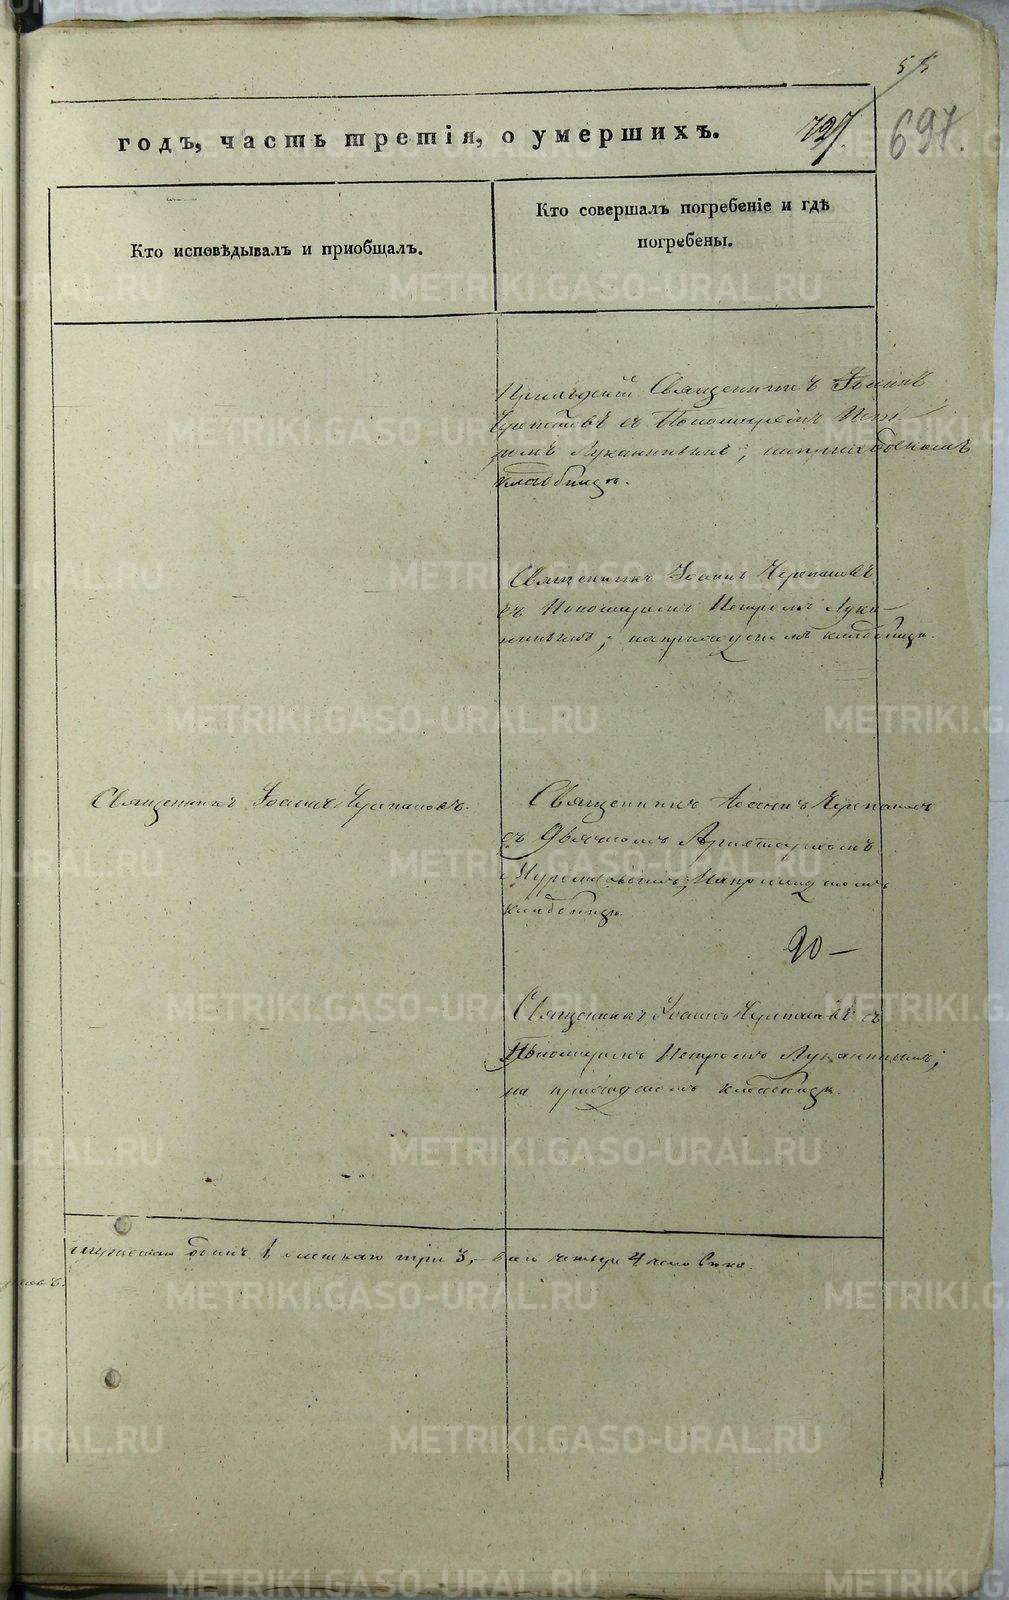 55
годъ, часть третія, о умершихъ.
727.
697.
Кто исповѣдывалъ и приобщалъ.
Кто совершалъ погребеніе и гдѣ
погребены.
Приходскій Священникъ Іоаннъ
Черепановъ съ Пономаремъ Пет-
ромъ Луканинымъ; на приходскомъ
кладбищѣ.
Священникъ Іоаннъ Черепановъ
съ Пономаремъ Петромъ Лука-
нинымъ; на приходскомъ кладбищѣ.
Священникъ Іоаннъ Черепановъ.
Священникъ Іоаннъ Черепановъ
съ Дьячкомъ Аристархомъ
на приходскомъ
кладбищѣ.
90 —
Священникъ Іоаннъ Черепановъ съ
Пономаремъ Петромъ Луканинымъ;
на приходскомъ кладбищѣ.
мужескаго одинъ 1, женскаго три 3, четыре 4 человѣка.
METRIKI.GASO-URAL.RU